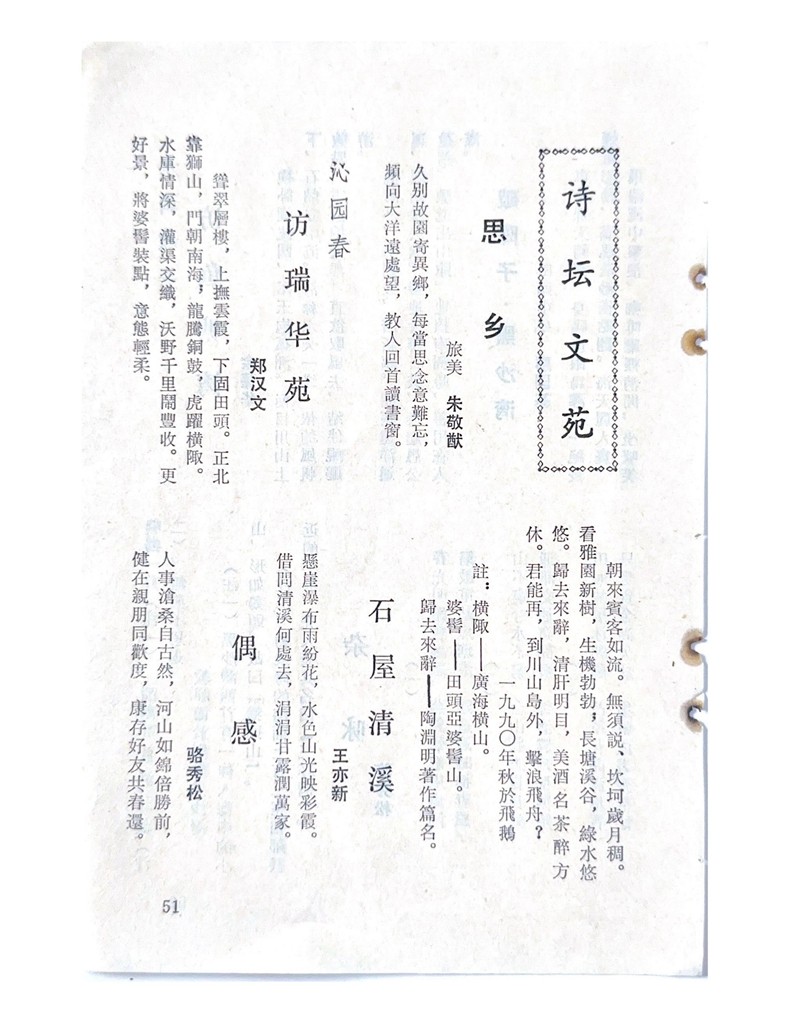 诗坛文苑
思乡
旅美 朱敬猷
久别故園寄異鄉，每當思念意難忘，
頻向大洋遠處望，教人回首讀書窗。
沁园春
访瑞华苑
郑汉文
聳翠層樓，上撫雲霞，下固田頭。正北
靠獅山，門朝南海，龍騰銅鼓，虎躍橫陬。
水庫情深，灌渠交織，沃野千里鬧豐收。更
好景，將婆髻裝點，意態輕柔。
朝來賓客如流。無須説、坎坷歲月稠。
看雅園新樹，生機勃勃；長塘溪谷，綠水悠
悠。歸去來辭，清肝明目，美酒名茶醉方
休。君能再，到川山島外，擊浪飛舟？
一九九〇年秋於飛鵝
註：橫陬——廣海橫山。
婆髻——田頭亞婆髻山。
歸去來辭——陶淵明著作篇名。
石屋清溪
王亦新
懸崖瀑布雨紛花，水色山光映彩霞。
借問清溪何處去，涓涓甘露潤萬家。
偶感
骆秀松
人事滄桑自古然，河山如錦倍勝前，
健在親朋同歡度，康存好友共春還。
51